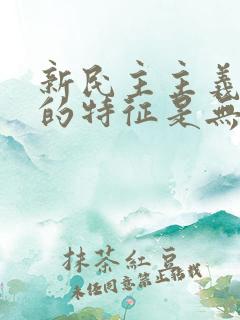 新民主主義
的特征是無
抹茶紅豆
未经同意禁止搭载